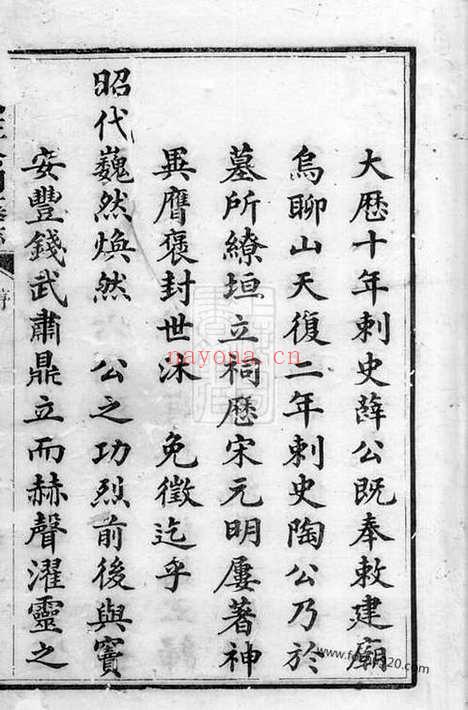 大歷十年刺史薛公既奉敕建廟
烏聊山天復二年刺史陶公乃於
墓所繚垣立祠歷宋元明屢著神
異膺褒封世沐 免徵迄乎
昭代巍然煥然 公之功烈前後與竇
安豐錢武肅鼎立而赫聲濯靈之
序
nayona.cn